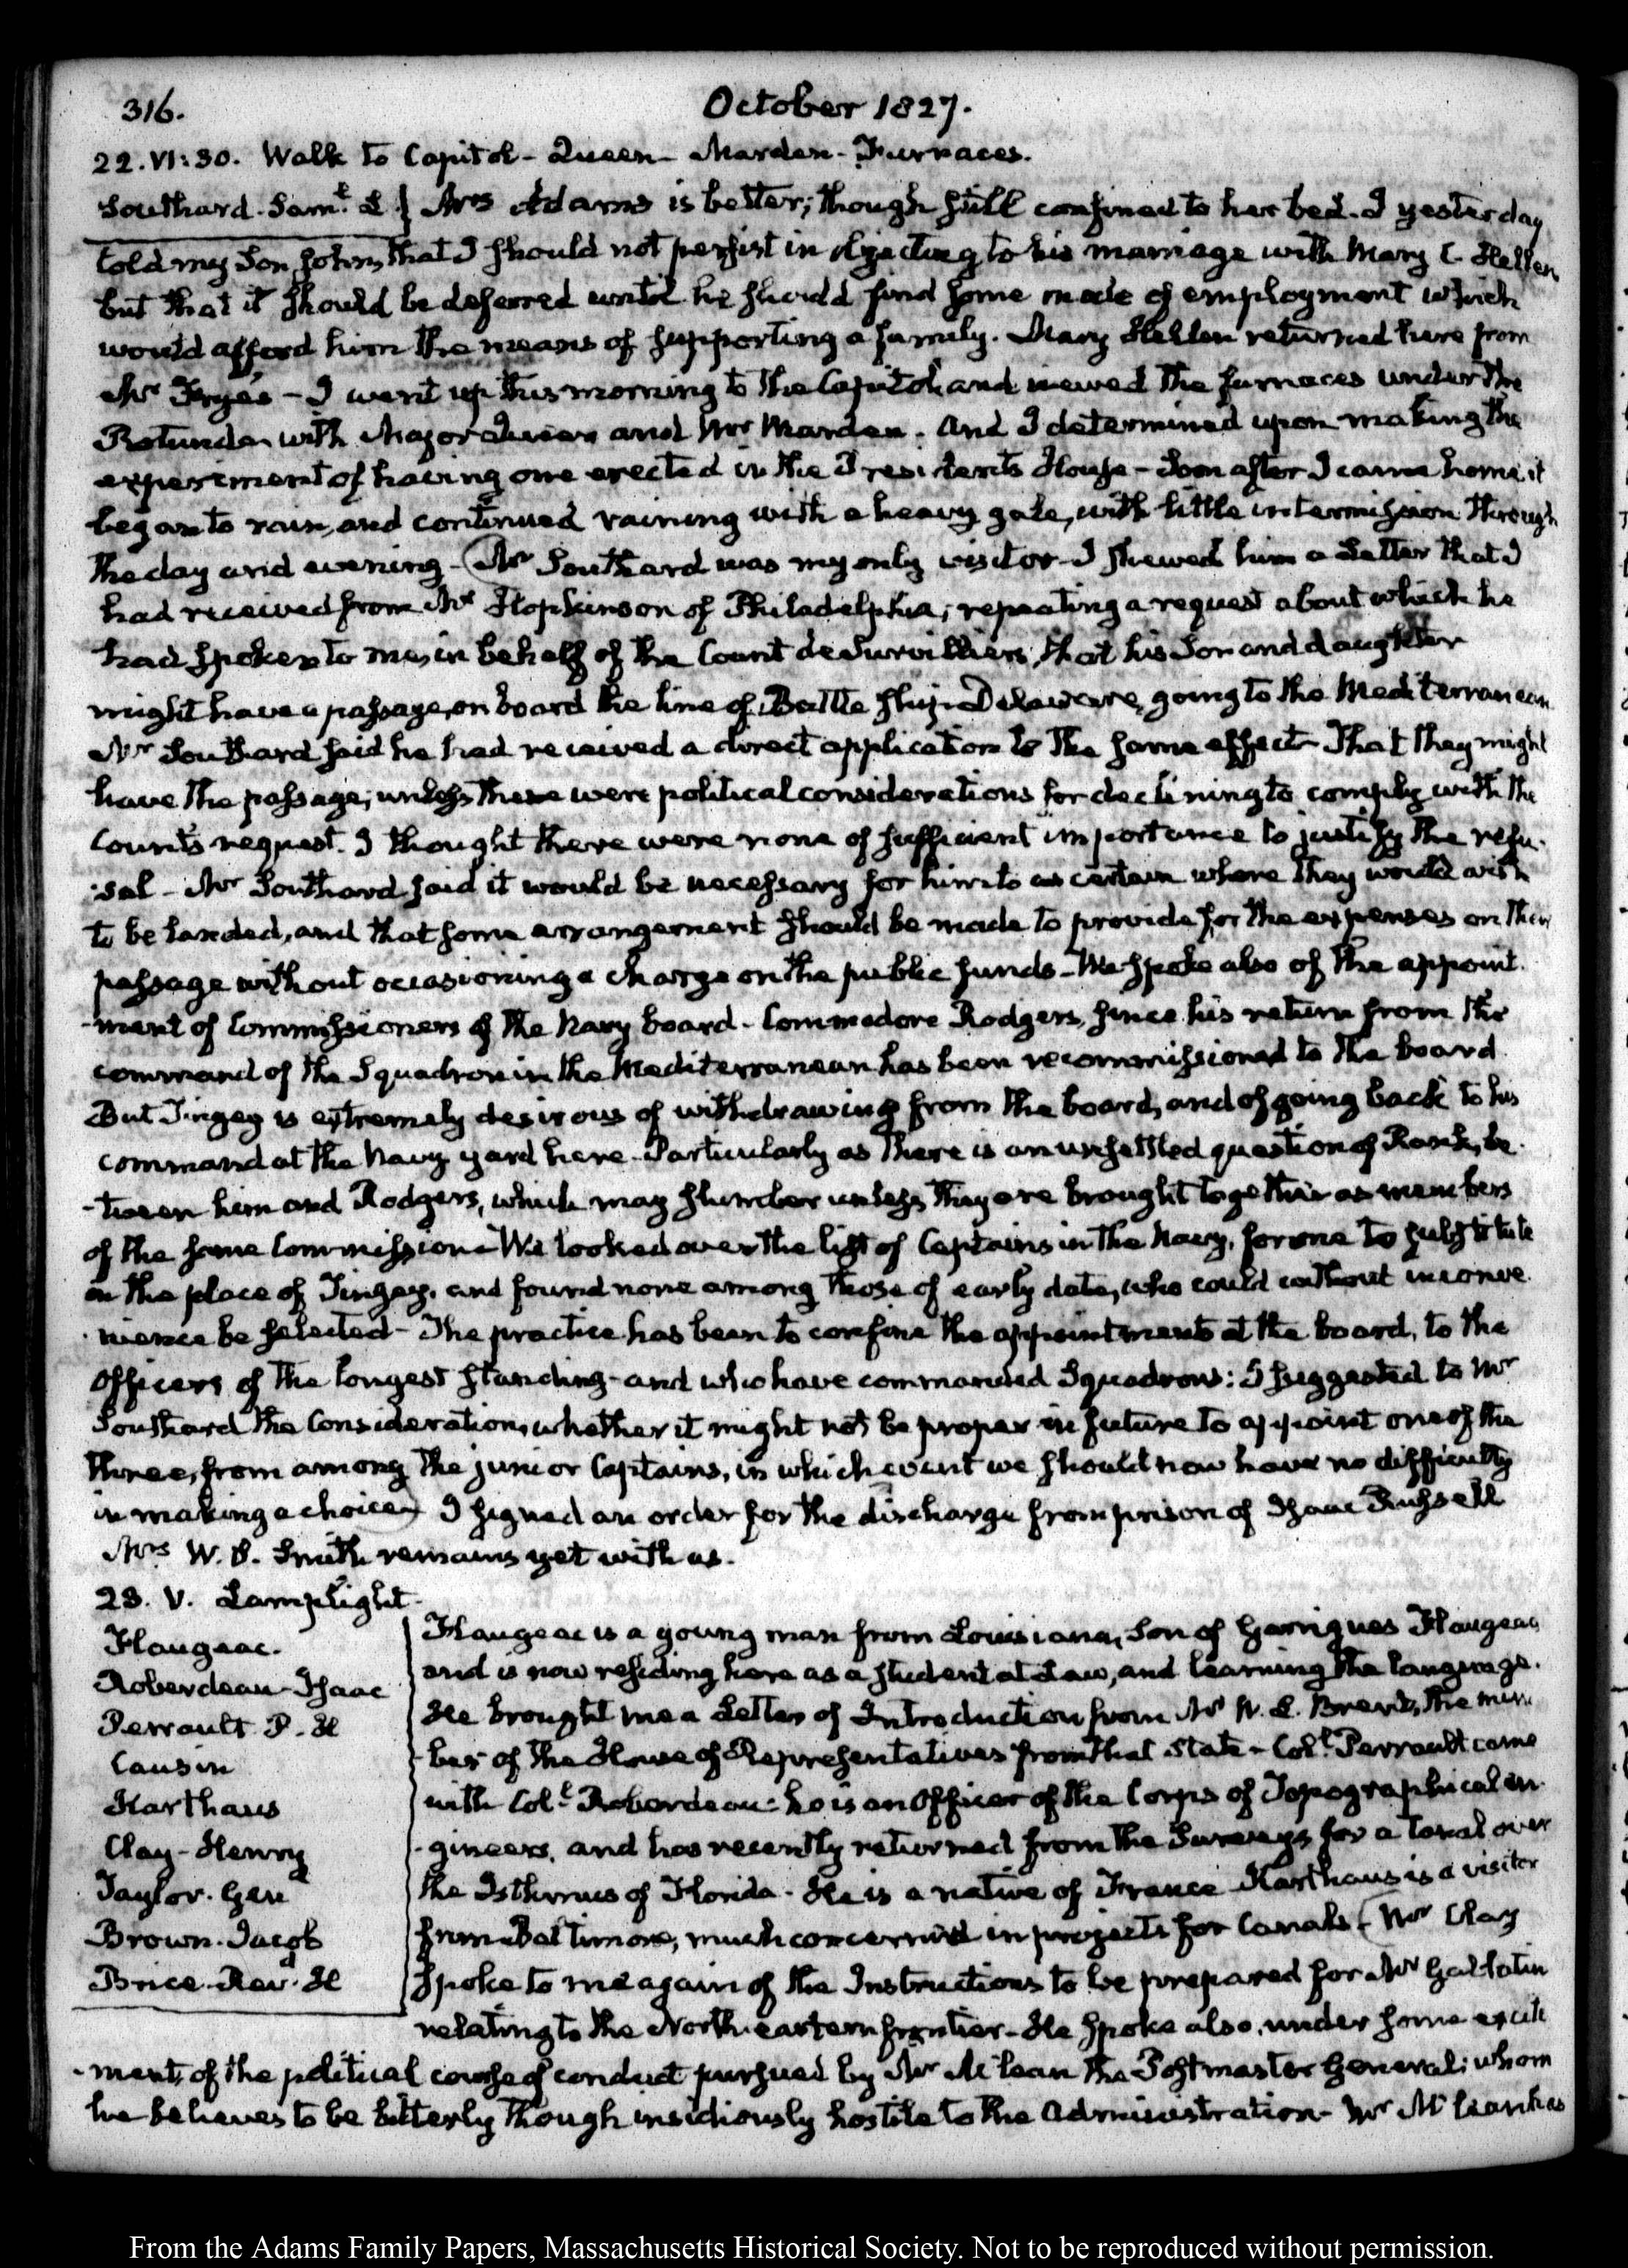 316.
October 1827.
22. VI:30. Walk to Capitol - Queen - Marden - Furnaces.
Southard. Saml. L. } Mrs Adams is better; though still confined to her bed. I yesterday
told my Son John, that I should not persist in objecting to his marriage with Mary C. Hellen
but that it should be deferred until he should find some mode of employment which
would afford him the means of supporting a family. Mary Hellen returned here from
Mr Frye's - I went up this morning to the Capitol and viewed the furnaces under the
Rotunda with Major Queen and Mr Marden. And I determined upon making the
experiment of having one erected in the President's House - Soon after I came home it
began to rain, and continued raining with a heavy gale, with little intermission through
the day and evening - Mr Southard was my only visitor - I shewed him a Letter that I
had received from Mr Hopkinson of Philadelphia, repeating a request about which he
had spoken to me, in behalf of the Count de Survilliers, that his Son and daughter
might have a passage, on board the line of Battle ship Delaware, going to the Mediterranean
Mr Southard said he had received a direct application to the same effect - That they might
have the passage, unless there were political considerations for declining to comply with the
Count's request. I thought there were none of sufficient importance to justify the refu-
-sal - Mr Southard said it would be necessary for him to ascertain where they would wish
to be landed, and that some arrangement should be made to provide for the expenses on their
passage without occasioning a charge on the public funds - We spoke also of the appoint-
-ment of Commissioners of the Navy board - Commodore Rodgers, since his return from the
command of the Squadron in the Mediterranean has been recommissioned to the board.
But Tingey is extremely desirous of withdrawing from the board, and of going back to his
command at the Navy yard here. Particularly as there is an unsettled question of Rank, be-
-tween him and Rodgers, which may slumber unless they are brought together as members
of the same Commission - We looked over the list of Captains in the Navy, for one to substitute
in the place of Tingey, and found none among those of early date, who could without inconve-
-nience be selected - The practice has been to confine the appointments at the board, to the
Officers of the longest standing - and who have commanded Squadrons: I suggested to Mr
Southard the Consideration, whether it might not be proper in future to appoint one of the
three, from among the junior Captains, in which event we should now have no difficulty
in making a choice - I signed an order for the discharge from prison of Isaac Russell
Mrs W. S. Smith remains yet with us.
23. V. Lamplight.
Flaugeac.
Roberdeau - Isaac
Perrault. P. H
Causin
Karthaus
Clay - Henry
Taylor. Genl
Brown. Jacob
Brice. Revd. H
Flaugeac is a young man from Louisiana, Son of Garrigues Flaugeac
and is now residing here as a student at Law, and learning the language.
He brought me a Letter of Introduction from Mr W. L. Brent, the mem-
-ber of the House of Representatives from that State - Coll. Perrault came
with Coll. Roberdeau - he is an Officer of the Corps of Topographical en-
-gineers, and has recently returned from the Surveys for a Canal over
the Isthmus of Florida - He is a native of France - Karthaus is a visitor
from Baltimore, much concerned in projects for Canals - Mr Clay
spoke to me again of the Instructions to be prepared for Mr Gallatin
relating to the North-eastern frontier - He spoke also, under some excite-
-ment, of the political course of conduct pursued by Mr McLean the Postmaster General; whom
he believes to be bitterly though insidiously hostile to the Administration - Mr McLean has
From the Adams Family Papers, Massachusetts Historical Society. Not to be reproduced without permission.